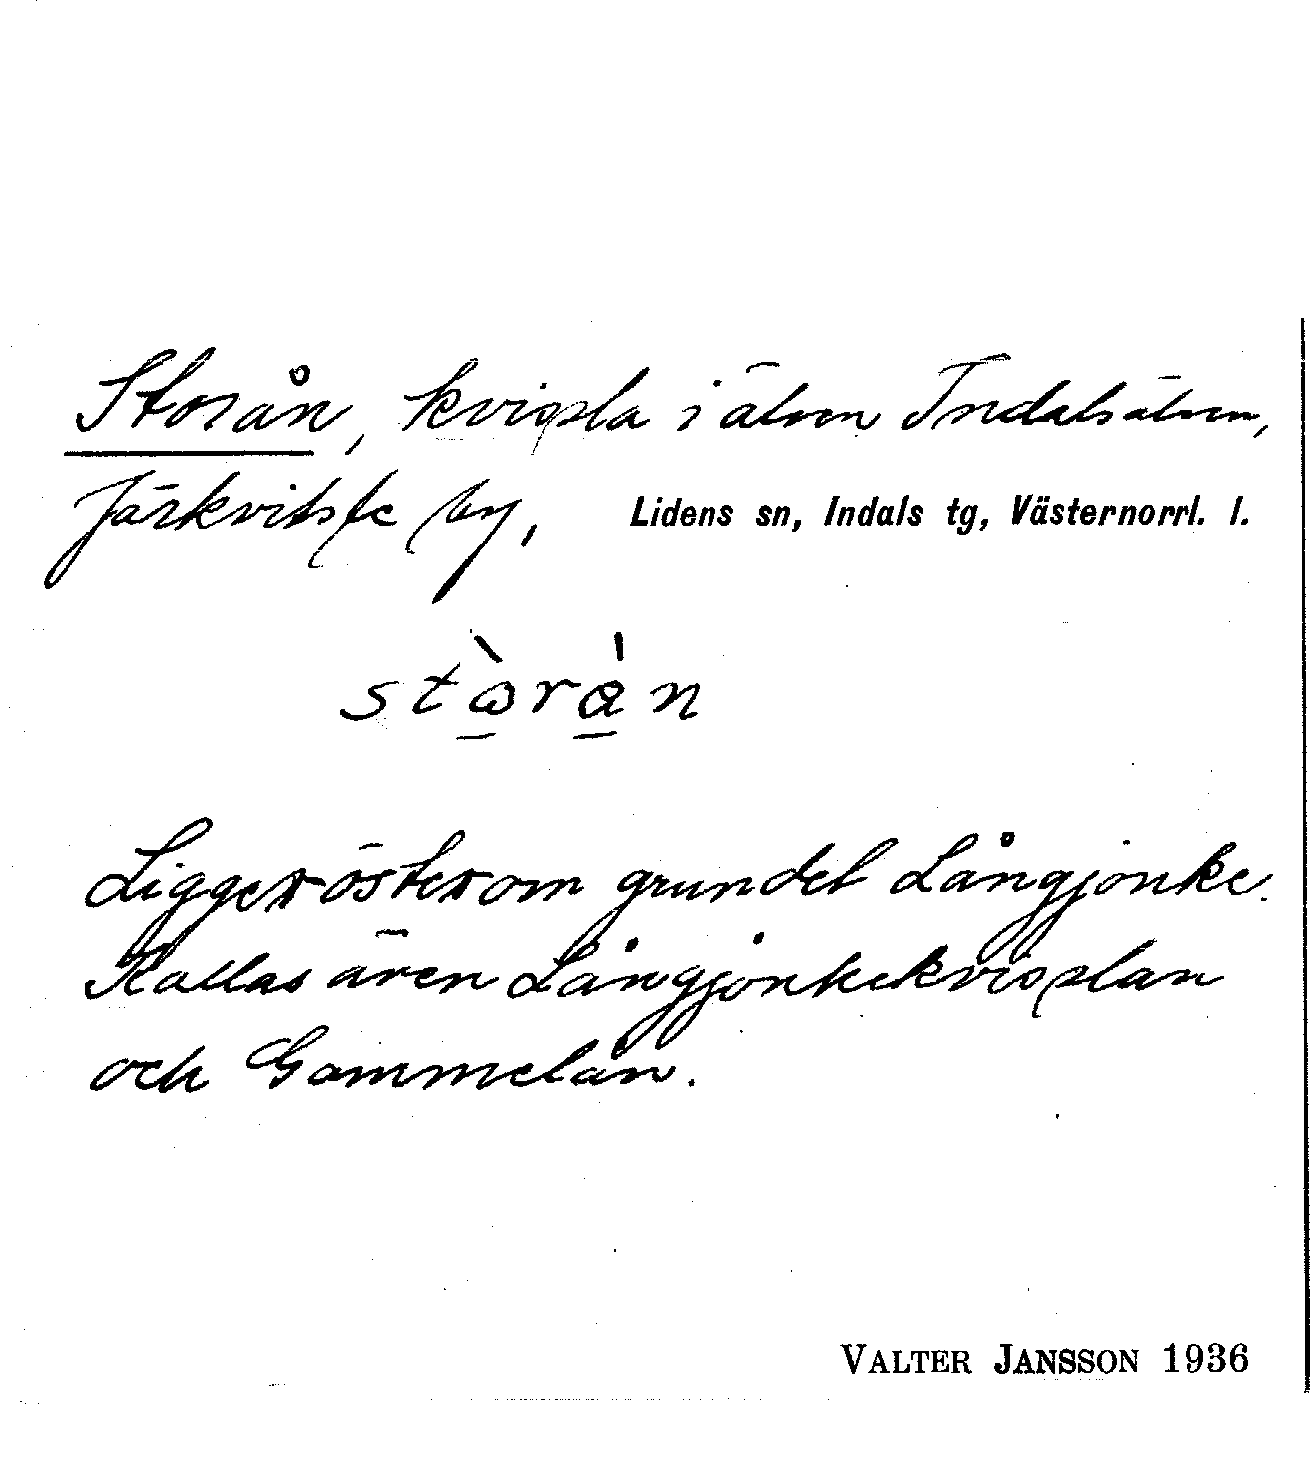 Storån, kvissla i älven Indalsälven,
Järkvitsle by, Lidens sn, Indals tg, Västernorrl. l.
Ligger öster om grundet Långjonke.
Kallas även Långjonkekvisslan
och Gammelån.
VALTER JANSSON 1936